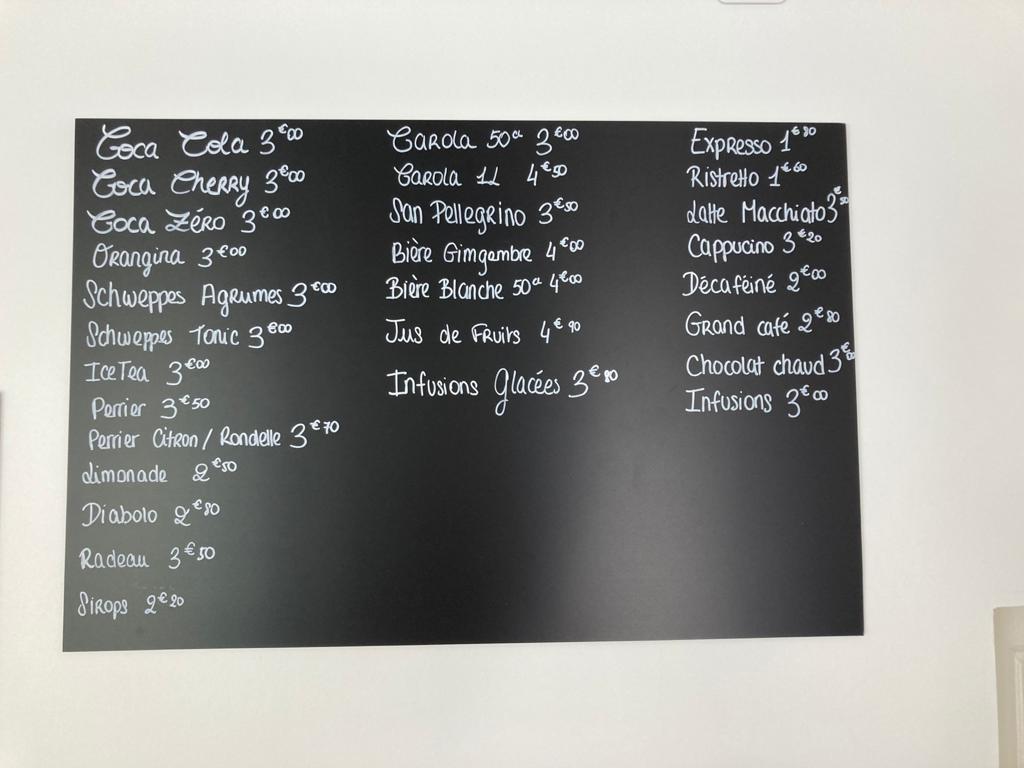 Coca Cola 3€00
Coca Cherry 3€00
Coca Zéro 3€00
Orangina 3€00
Schweppes Agrumes 3€00
Schweppes Tonic 3€00
Ice Tea 3€00
Perrier 3€50
Perrier Citron / Rondelle 3€70
Limonade 2€50
Diabolo 2€80
Radeau 3€50
Sirops 2€20
Carola 50cl 3€00
Carola 1L 4€50
San Pellegrino 3€50
Bière Gimgembre 4€00
Bière Blanche 50cl 4€00
Jus de Fruits 4€90
Infusions Glacées 3€80
Expresso 1€80
Ristretto 1€60
Latte Macchiato 3€50
Cappucino 3€20
Décaféiné 2€00
Grand café 2€80
Chocolat chaud 3€00
Infusions 3€00